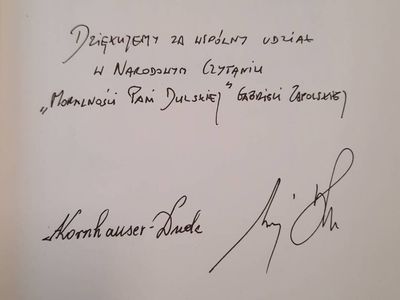 Dziękujemy za wspólny udział
w Narodowym Czytaniu
„Moralności Pani Dulskiej" Gabrieli Zapolskiej
Kornhauser-Duda